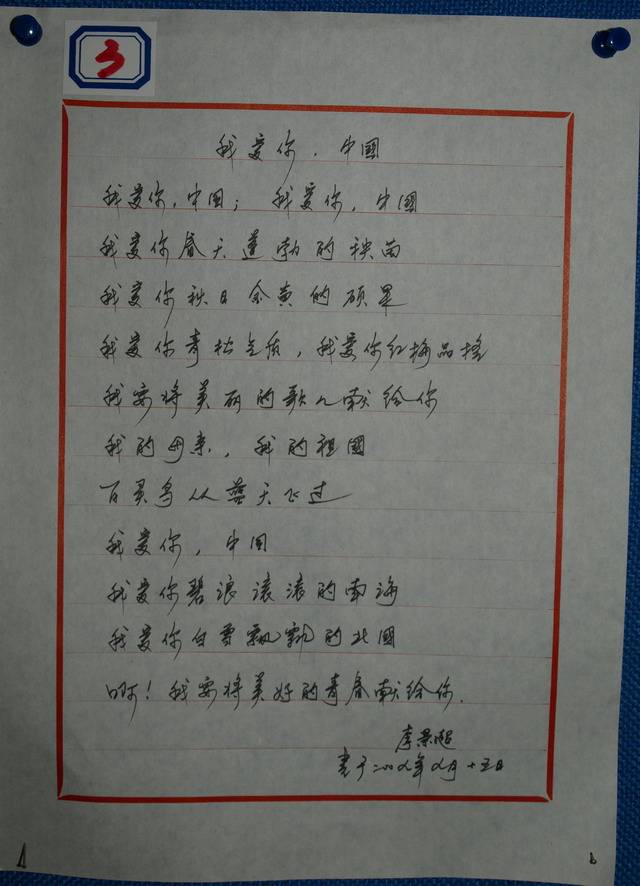 3
我爱你，中國
我爱你，中国；我爱你，中國
我爱你春天蓬勃的秧苗
我爱你秋日金黄的硕果
我爱你青松气质，我爱你红梅品格
我要将美丽的歌儿献给你
我的母亲，我的祖國
百灵鸟从蓝天飞过
我爱你，中国
我爱你碧浪滚滚的南海
我爱你白雪飘飘的北國
啊！我要将美好的青春献给你.
李景
书于二〇〇年 月十五日